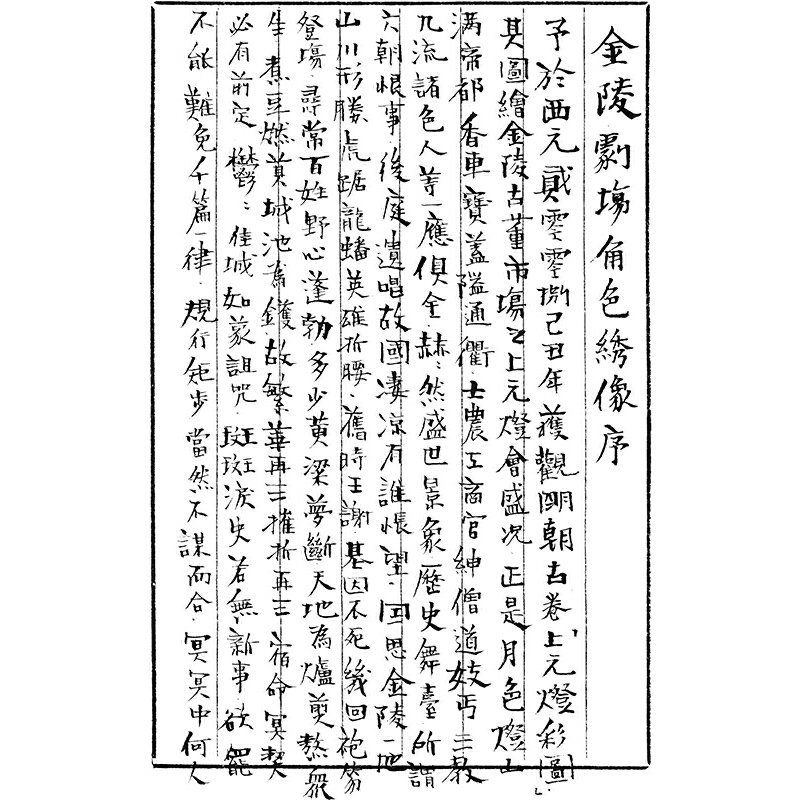 金陵劇場角色綉像序
予於西元貳零零捌己丑年獲觀明朝古卷「上元燈彩圖」
其圖繪金陵古董市場之上元燈會盛況正是月色燈山
滿帝都香車寶蓋隘通衢士農工商官紳僧道妓丐三教
九流諸色人等一應俱全赫〻然盛世景象歷史舞臺所謂
六朝恨事後庭遺唱故國淒涼有誰悵望回思金陵一地
山川形勝虎踞龍蟠英雄折腰舊時王謝基因不死幾回袍笏
登場尋常百姓野心蓬勃多少黃粱夢斷天地為爐煎熬眾
生煮豆燃萁城池為鑊故繁華再三摧折再三宿命冥契
必有前定鬱〻佳城如蒙詛咒斑斑淚史若無新事欲罷
不能難免千篇一律規行矩步當然不謀而合冥冥中何人